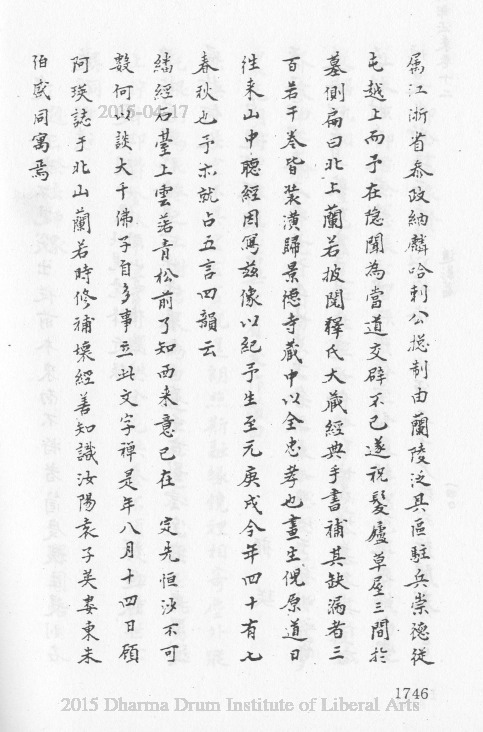 屬江浙省參政納麟哈剌公揔制由蘭陵泛具區駐兵崇德從
屯越上而予在隐聞為當道交辟不已遂祝髮廬草屋三間於
墓側扁曰北上蘭若披閱釋氏大藏經典手書補其缺漏者三
百若干巻皆裝潢歸景德寺藏中以全忠孝也畫生倪原道日
徃来山中聽經因寫兹像以紀予生至元庚戌今年四十有七
春秋也予亦就占五言四韻云
繙經石䑓上雲落青松前了知西来意已在定先恒沙不可
數何以談大千佛子自多事立此文字禪是年八月十四日顧
阿瑛誌于北山蘭若時修補壞經善知識汝陽袁子英婁東朱
伯盛同寓焉
2015-04-17
1746
2015 Dharma Drum Institute of Liberal Arts